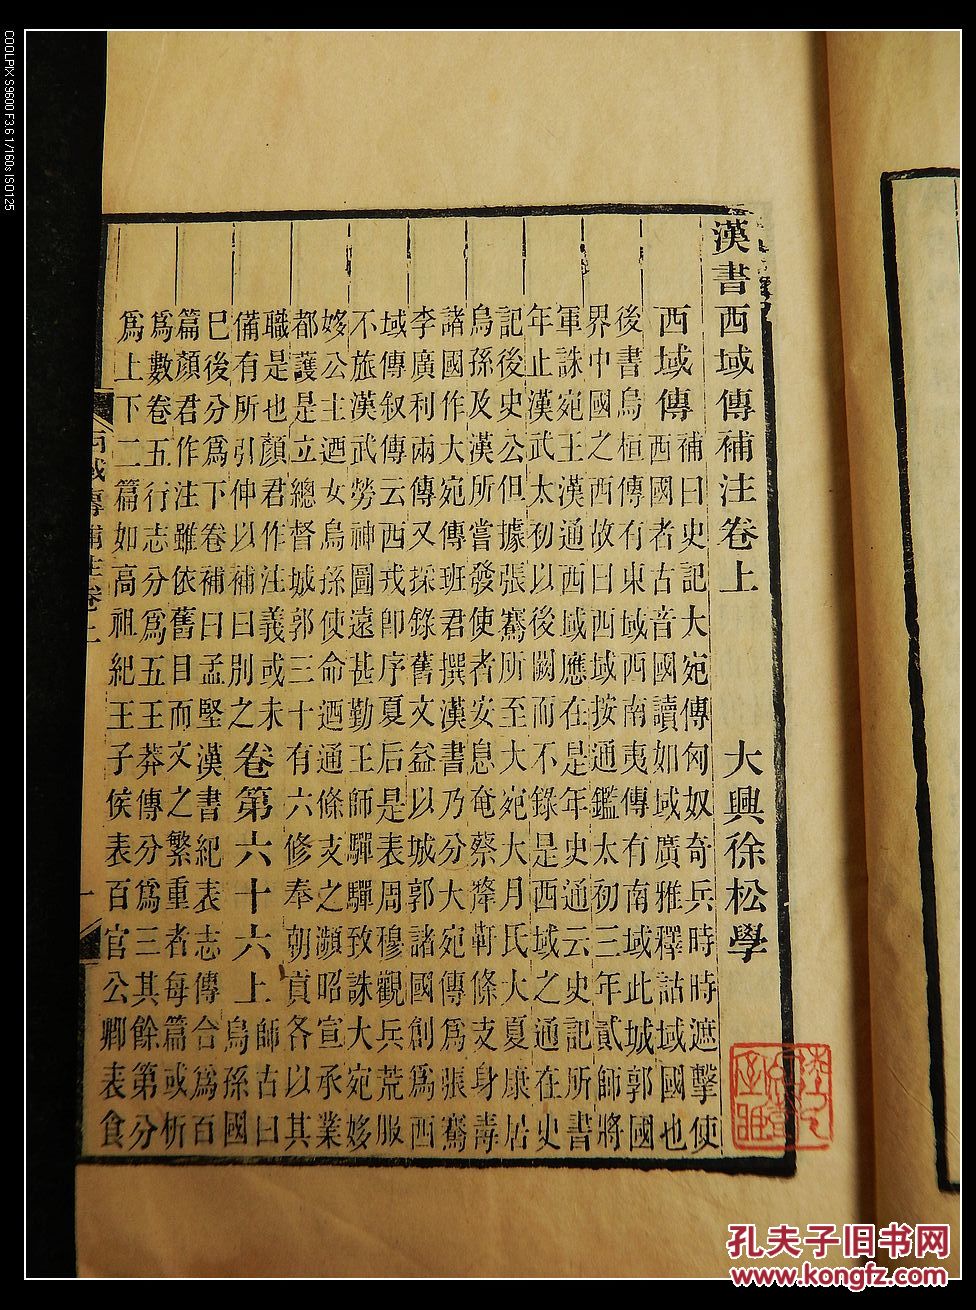 COOLPIX S9600 F3.6 1/160s ISO125
漢書西域傳補注卷上 大興徐松學
西域傳
補曰史記大宛傳匈奴奇兵時時遮擊使
西國者古音國讀如域廣雅釋詁域國也
後書烏桓傳有東域西南夷傳有南域此城郭國
界中國之西故曰西域按通鑑太初三年貳師將
軍誅宛王漢通西域應在是年史通云史記所書
年止漢武太初以後闕而不錄是西域之通在史
記後史公但據張騫所至大宛大月氏大夏康居
烏孫及漢所嘗發使者安息奄蔡犛靬條支身毒
諸國作大宛傳班君撰漢書乃分大宛傳爲張騫
李廣利兩傳又採錄舊文益以城郭諸國創爲西
域傳叙傳云西戎卽序夏后是表周穆觀兵荒服
不旅漢武勞神圖遠甚勤王師驒驒致誅大宛姼
姼公主迺女烏孫使命迺通條支之瀕昭宣承業
都護是立總督城郭三十有六修奉朝貢各以其
職是也顏君作注義或未
備有所引伸以補曰別之
卷第六十六上
師古曰
烏孫國
已後分爲下卷補曰孟堅漢書紀表志傳合爲百
篇顏君作注雖依舊目而文之繁重者每篇或析
爲數卷五行志分爲五王莽傳分爲三其餘第分
爲上下二篇如高祖紀王子侯表百官公卿表食
西域傳補注卷上 一
孔夫子旧书网
www.kongfz.com